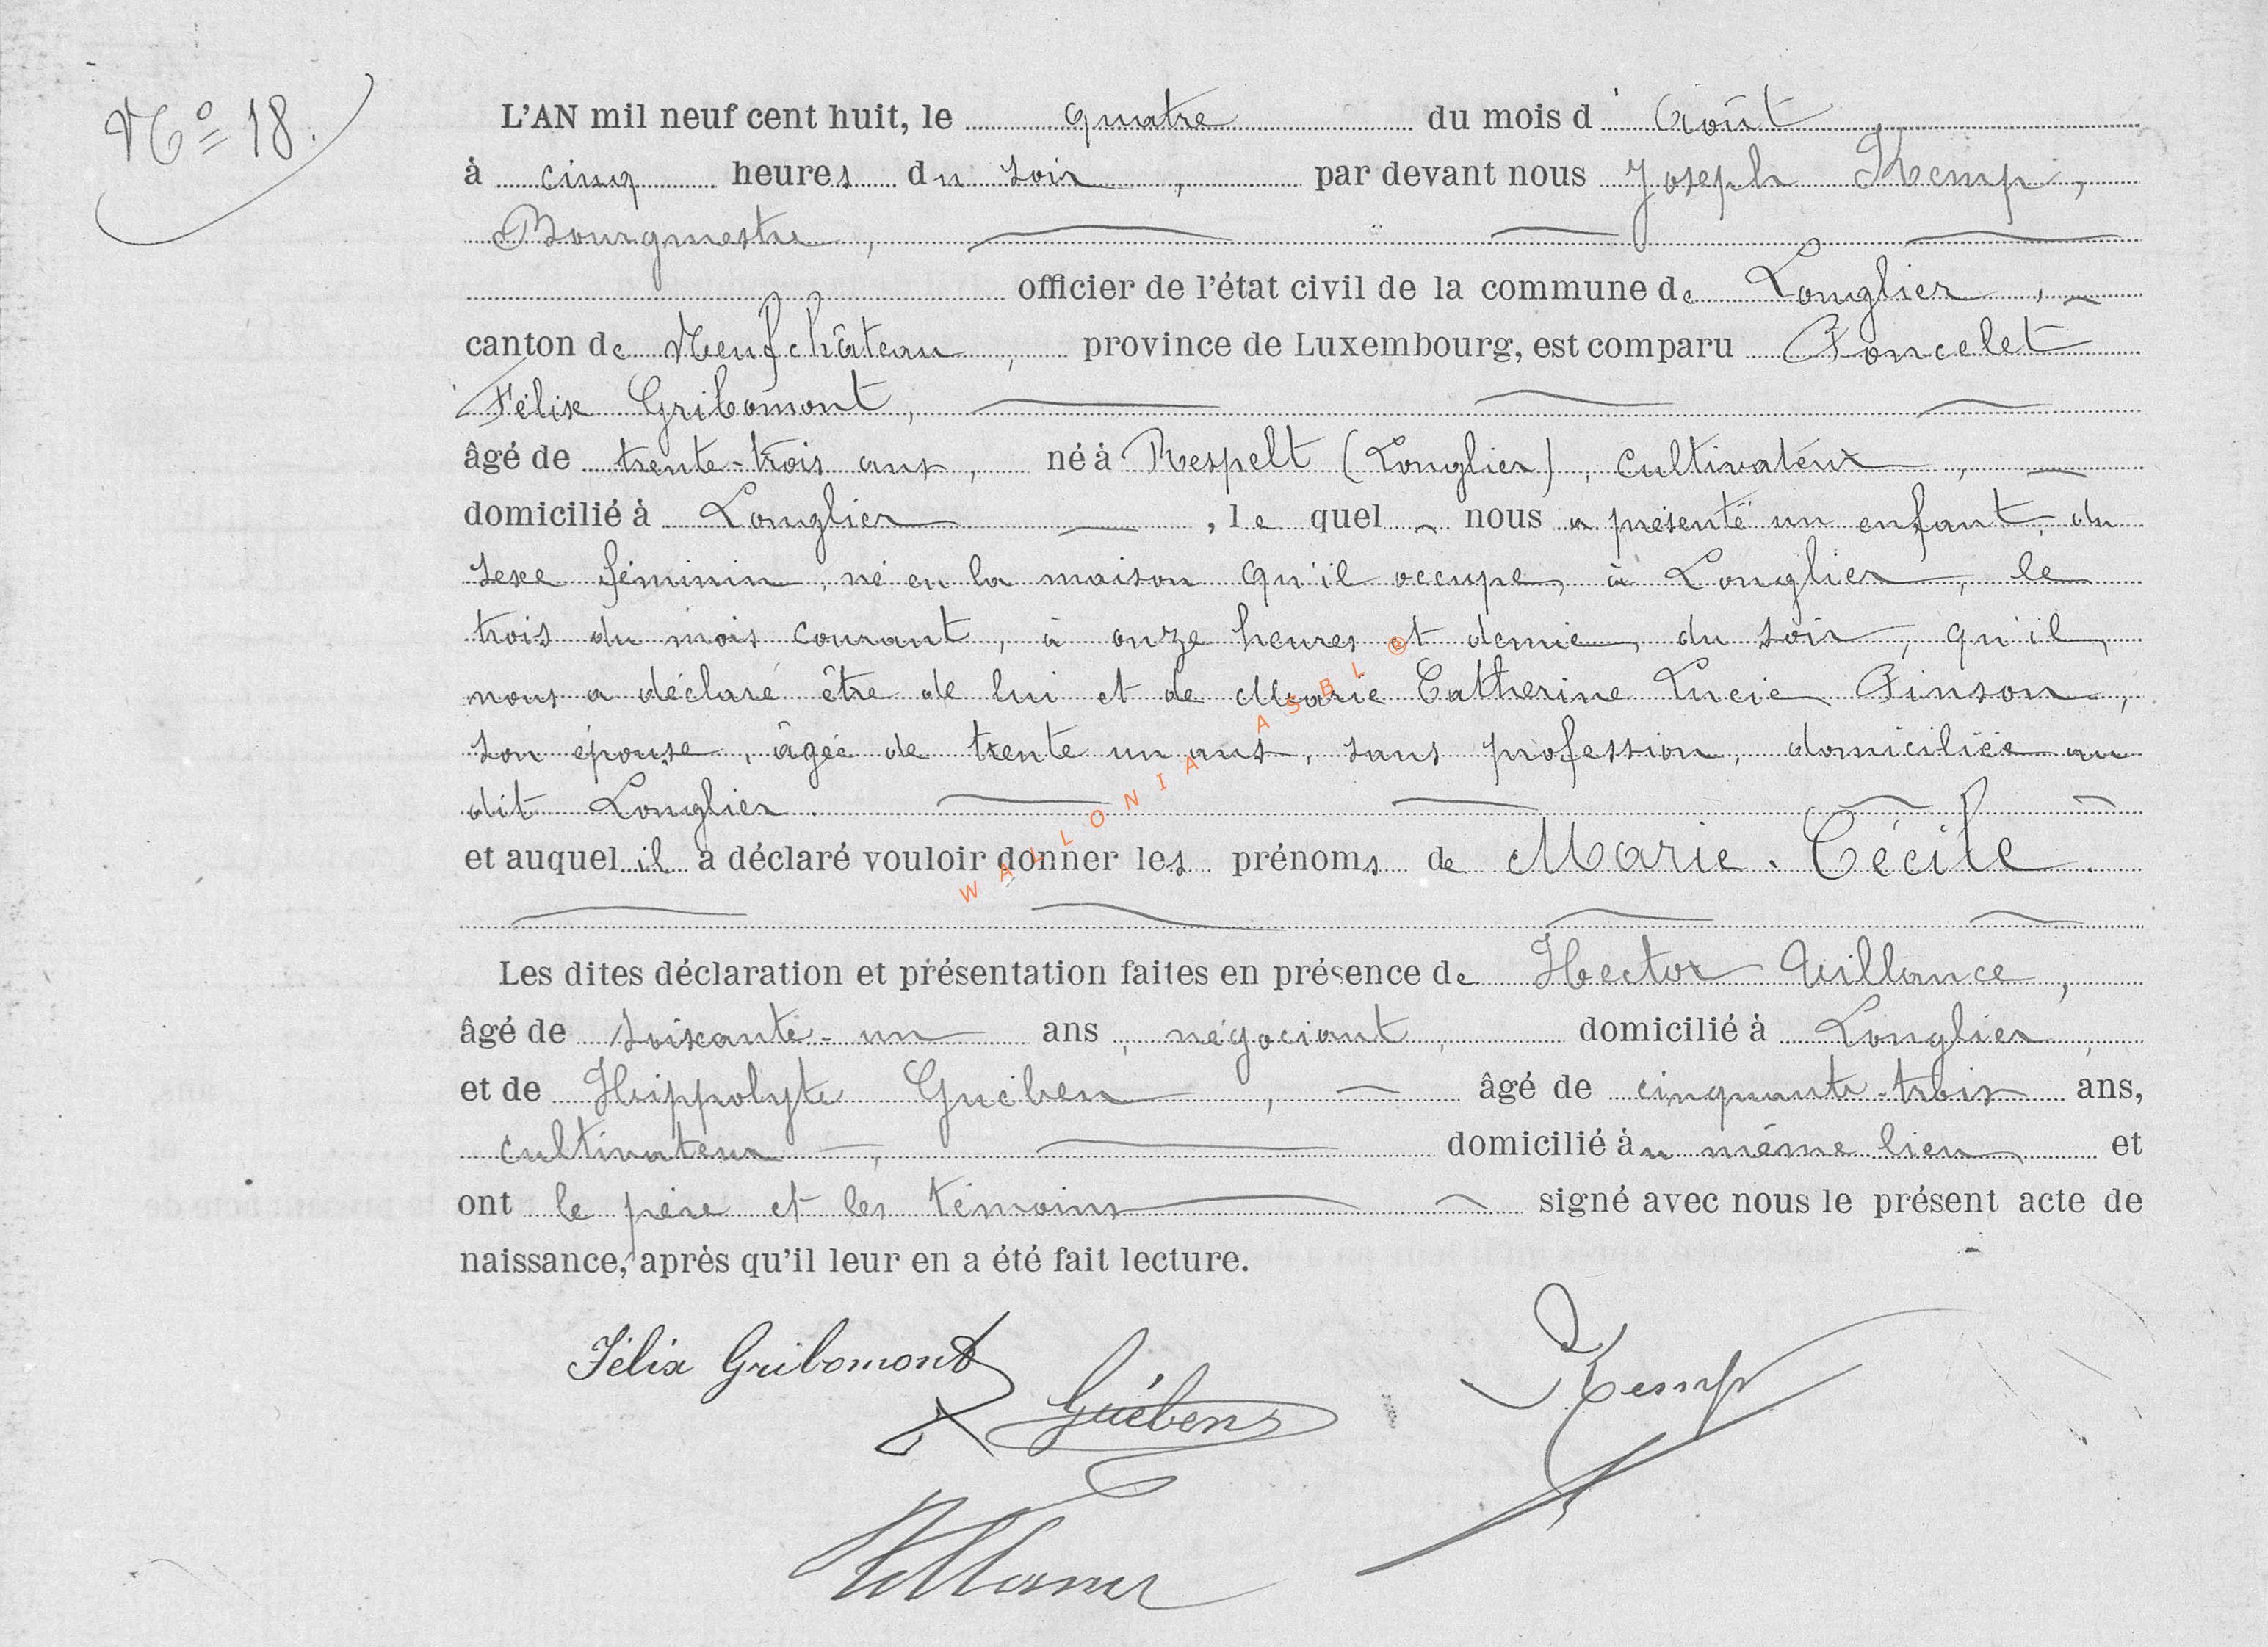 Nº 18.
L'AN mil neuf cent huit, le quatre du mois d'Août
à cinq heures du soir, par devant nous Joseph Kemp,
Bourgmestre,
officier de l'état civil de la commune de Longlier,
canton de Neufchâteau, province de Luxembourg, est comparu Poncelet
Félix Gribomont,
âgé de trente-trois ans, né à Respelt (Longlier), cultivateur,
domicilié à Longlier, lequel nous a présenté un enfant, du
sexe féminin, né en la maison qu'il occupe, à Longlier, le
trois du mois courant, à onze heures et demie du soir, qu'il
nous a déclaré être de lui et de Marie Catherine Lucie Pinson,
son épouse, âgée de trente un ans, sans profession, domiciliée au
dit Longlier.
et auquel il a déclaré vouloir donner les prénoms de Marie-Cécile.
Les dites déclaration et présentation faites en présence de Hector Willance,
âgé de soixante-un ans, négociant, domicilié à Longlier,
et de Hippolyte Gueiben, âgé de cinquante-trois ans,
cultivateur, domicilié àu même lieu et
ont le père et les témoins signé avec nous le présent acte de
naissance, après qu'il leur en a été fait lecture.
Félix Gribomont
Kemp
Guébens
Willance
WALLONIA ASBL ©